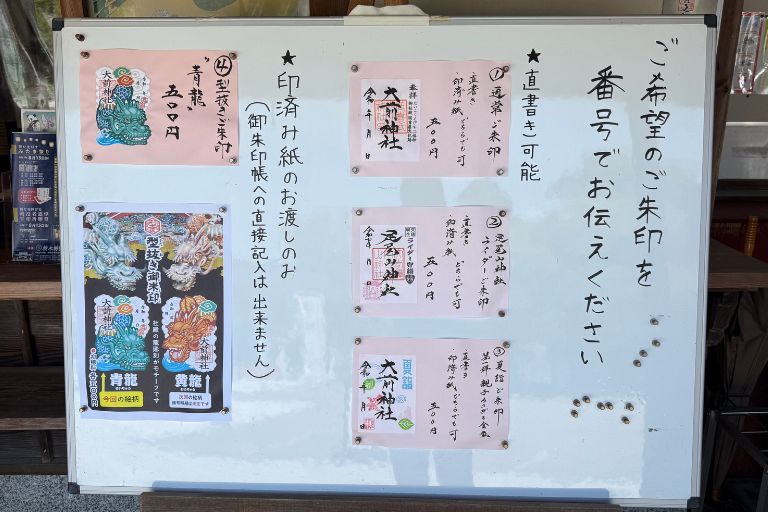 ご希望のご朱印を
番号でお伝えください
★直書き可能
①通常ご朱印
・直書き
・印済み紙 どちらでも可
五〇〇円
奉拝
大前神社
令和 年 月 日
②足尾山神社
ライダーご朱印
・直書き
・印済み紙 どちらでも可
五〇〇円
足尾山神社
令和 年 月 日
③夏詣ご朱印
・直書き
・印済み紙 どちらでも可
五〇〇円
夏詣
大前神社
令和 年 月 日
★印済み紙のお渡しのみ
(御朱印帳への直接記入は出来ません)
④型抜きご朱印
"青龍"
五〇〇円
大前神社
型抜き御朱印
社殿の龍彫刻がモチーフです
大前神社
青龍
今回の絵柄
大前神社
黄龍
次回の絵柄